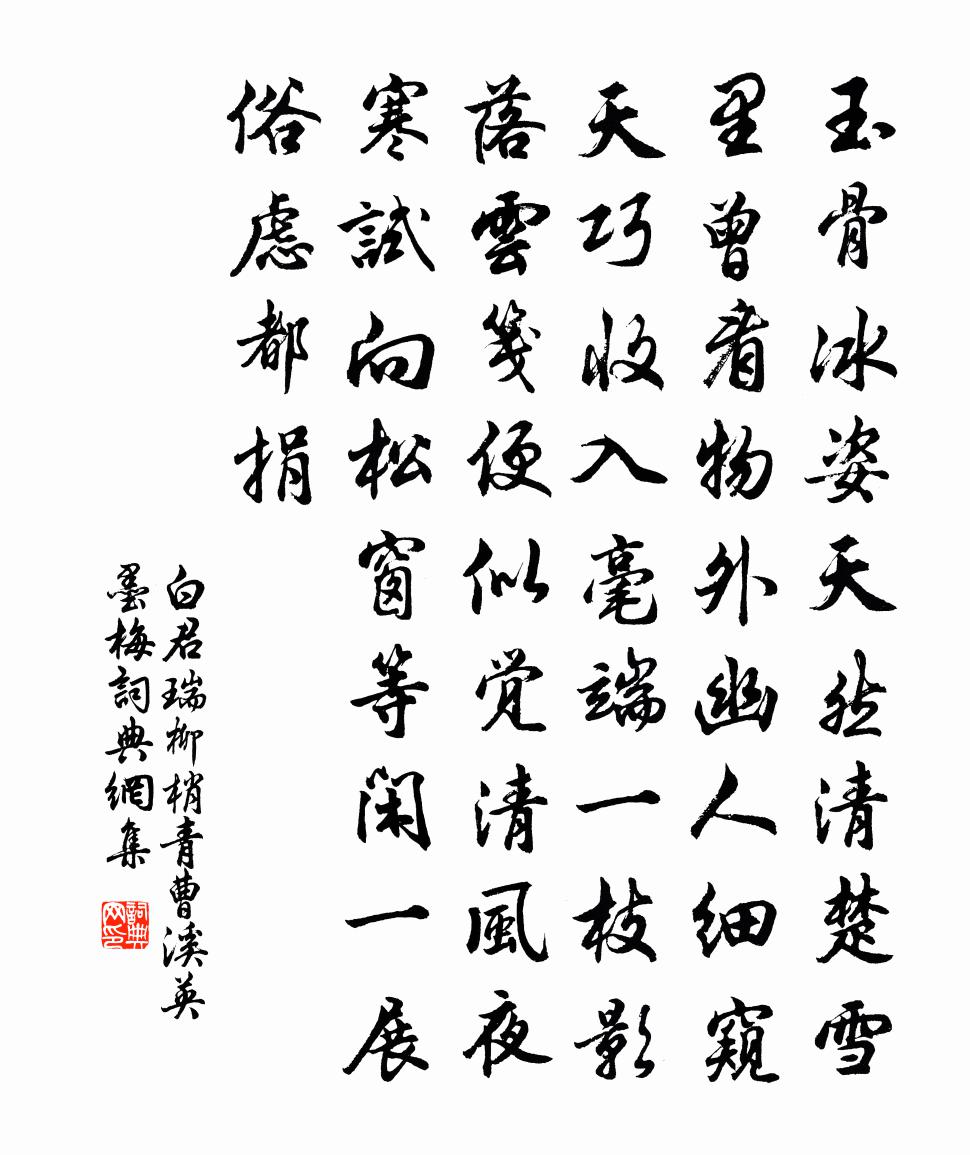 玉骨冰姿天然清楚雪
里曾看物外幽人細窺
天巧收入毫端一枝影
落雲箋便似覺清風夜
寒試向松窗等閑一展
俗慮都捐
白君瑞柳梢青曹溪英
墨梅詞典網集
詞典网印